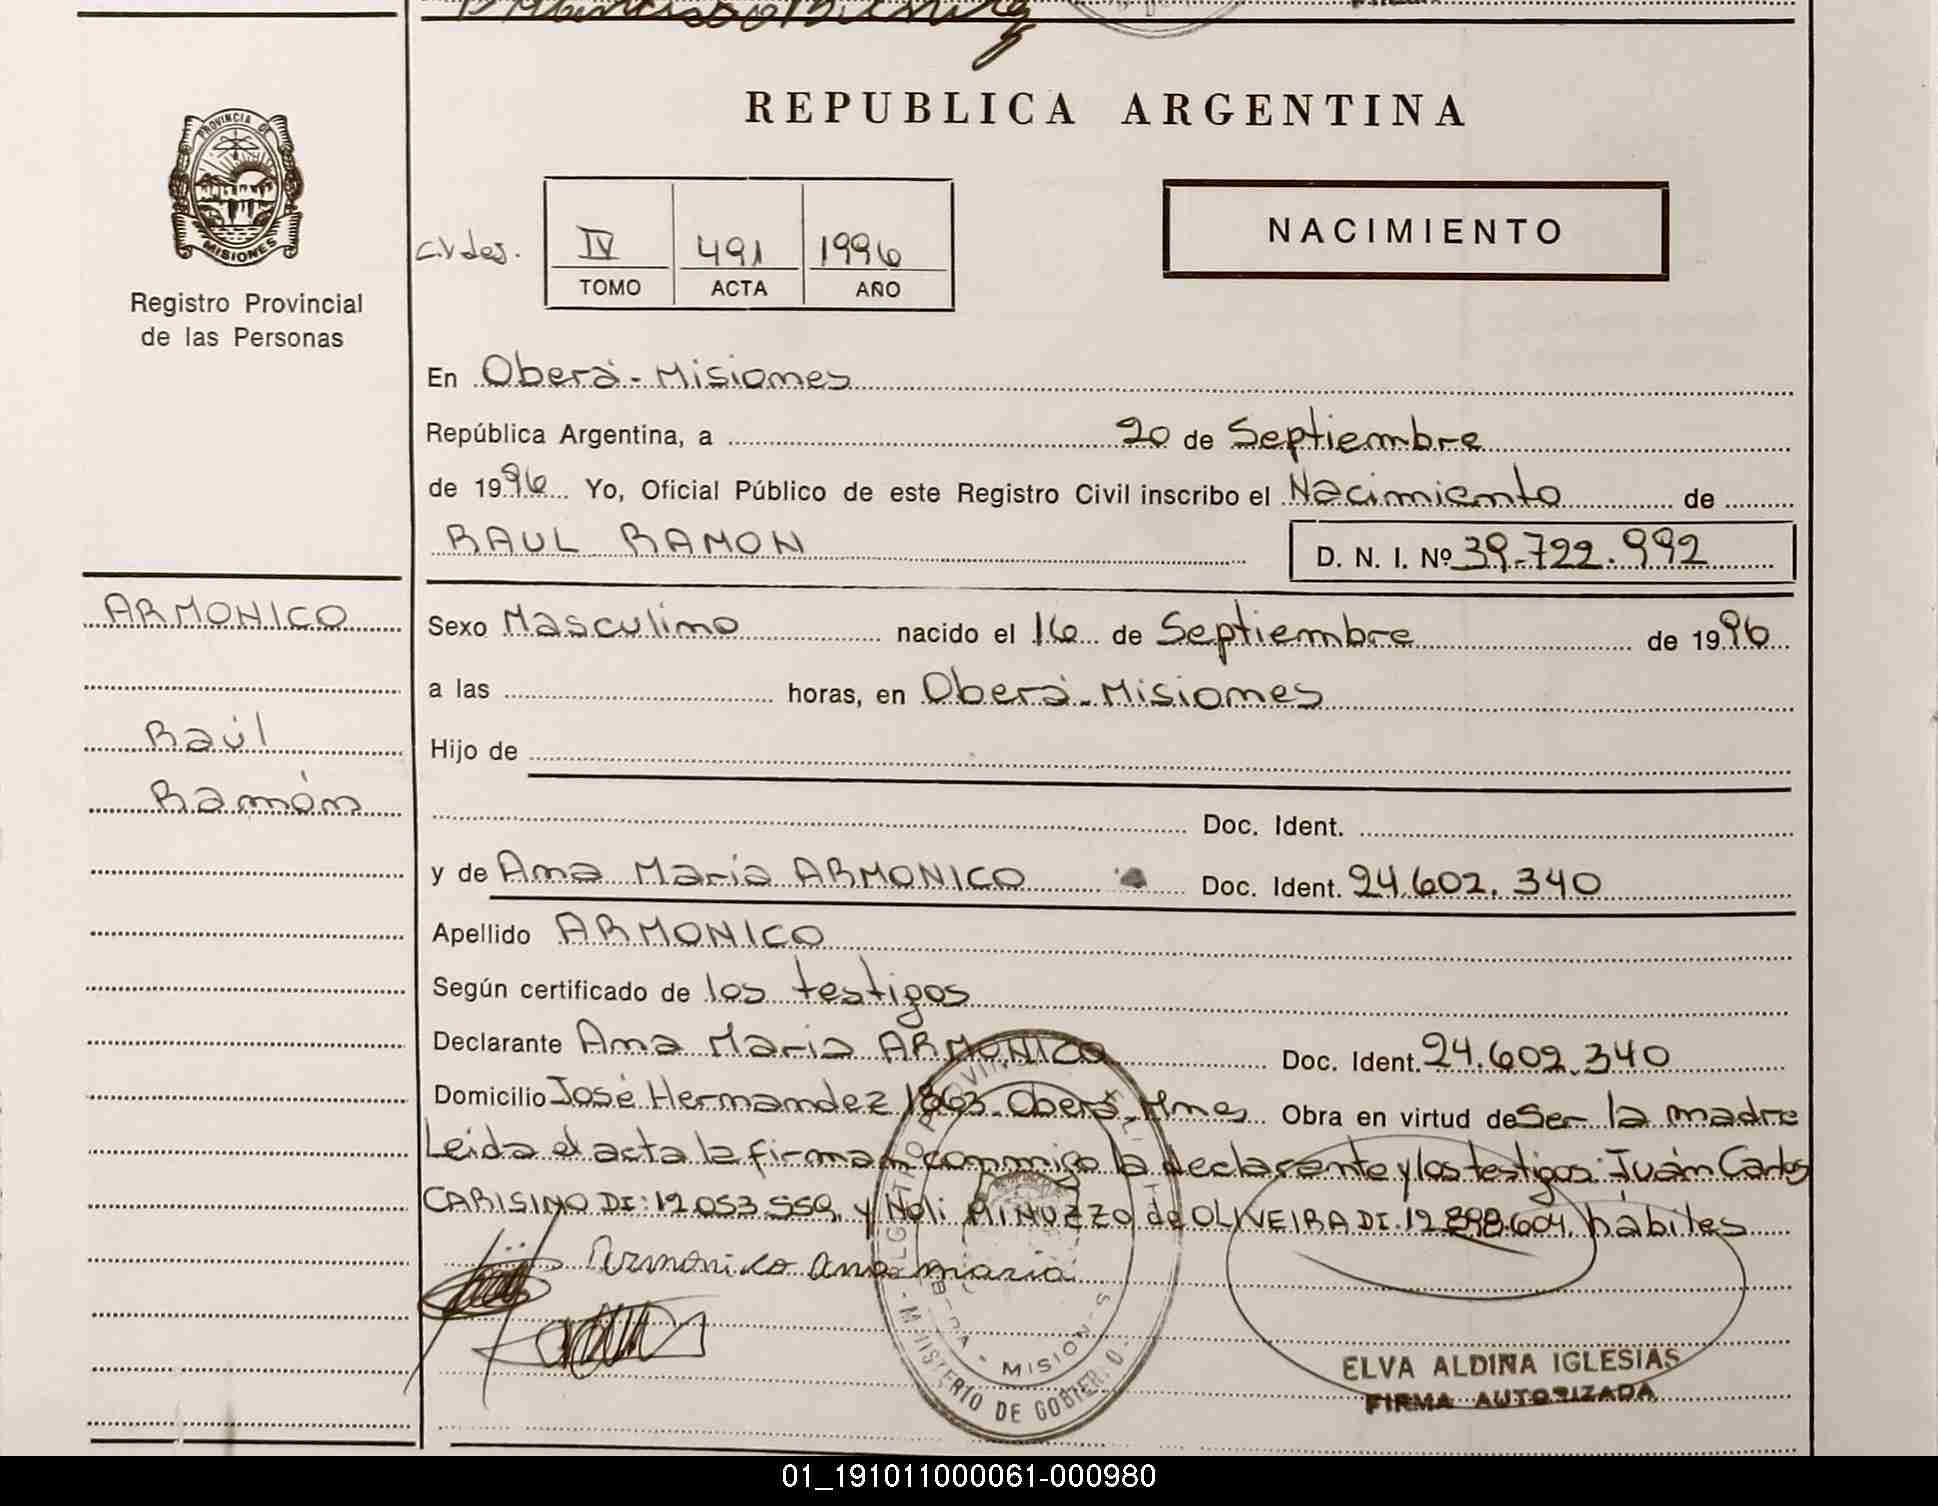 REPUBLICA ARGENTINA
PROVINCIA DE
MISIONES
Registro Provincial
de las Personas
IV 491 1996
TOMO ACTA AÑO
NACIMIENTO
En Oberá - Misiones
República Argentina, a 20 de Septiembre
de 1996 Yo, Oficial Público de este Registro Civil inscribo el Nacimiento de
RAUL RAMON D. N. I. Nº 39.722.992
ARMONICO
Raúl
Ramón
Sexo Masculino nacido el 16 de Septiembre de 1996
a las horas, en Oberá - Misiones
Hijo de
Doc. Ident.
y de Ana María ARMONICO Doc. Ident. 24.602.340
Apellido ARMONICO
Según certificado de los testigos
Declarante Ana María ARMONICO Doc. Ident. 24.602.340
Domicilio José Hernandez 1863 - Oberá - Mnes Obra en virtud de Ser la madre
Leida el acta la firman conmigo la declarante y los testigos: Juán Carlos
CARISIMO DI: 12.053.559, y Noli MINUZZO de OLIVEIRA DI. 12.898.604, hábiles
Armonico Ana maria
MINISTERIO DE GOBIERNO
MISIONES
ELVA ALDINA IGLESIAS
FIRMA AUTORIZADA
01_191011000061-000980